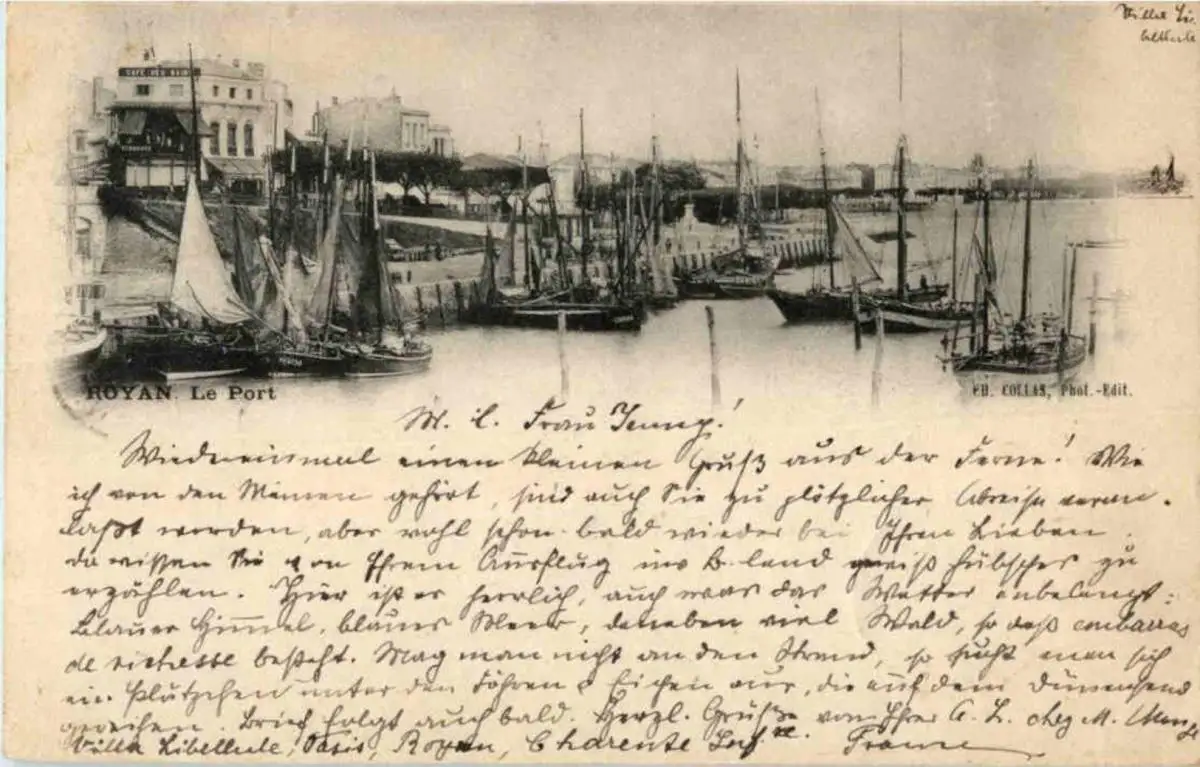 Villa Li-
bellule
CAFÉ DES BAINS
ROYAN. Le Port
CH. COLLAS, Phot.-Edit.
M. l. Frau Jenny!
Wiedereinmal einen kleinen Gruß aus der Ferne! Wie
ich von den Meinen gehört, sind auch Sie zu plötzlicher Abreise veran-
laßt worden, aber wohl schon bald wieder bei Ihren Lieben.
da wissen Sie von Ihrem Ausflug ins B. land gewiß hübsches zu
erzählen. Hier ist es herrlich, auch was das Wetter anbelangt:
blauer Himmel, blaues Meer, daneben viel Wald, so daß embarras
de richesse besteht. Mag man nicht an den Strand, so sucht man sich
ein Plätzchen unter den Föhren & Eichen aus, die auf dem Dünensand
gedeihen. Brief folgt auch bald. Herzl. Grüße von Ihrer A. L. chez M.
Villa Libellule, Oasis, Royan, Charente Infre. France